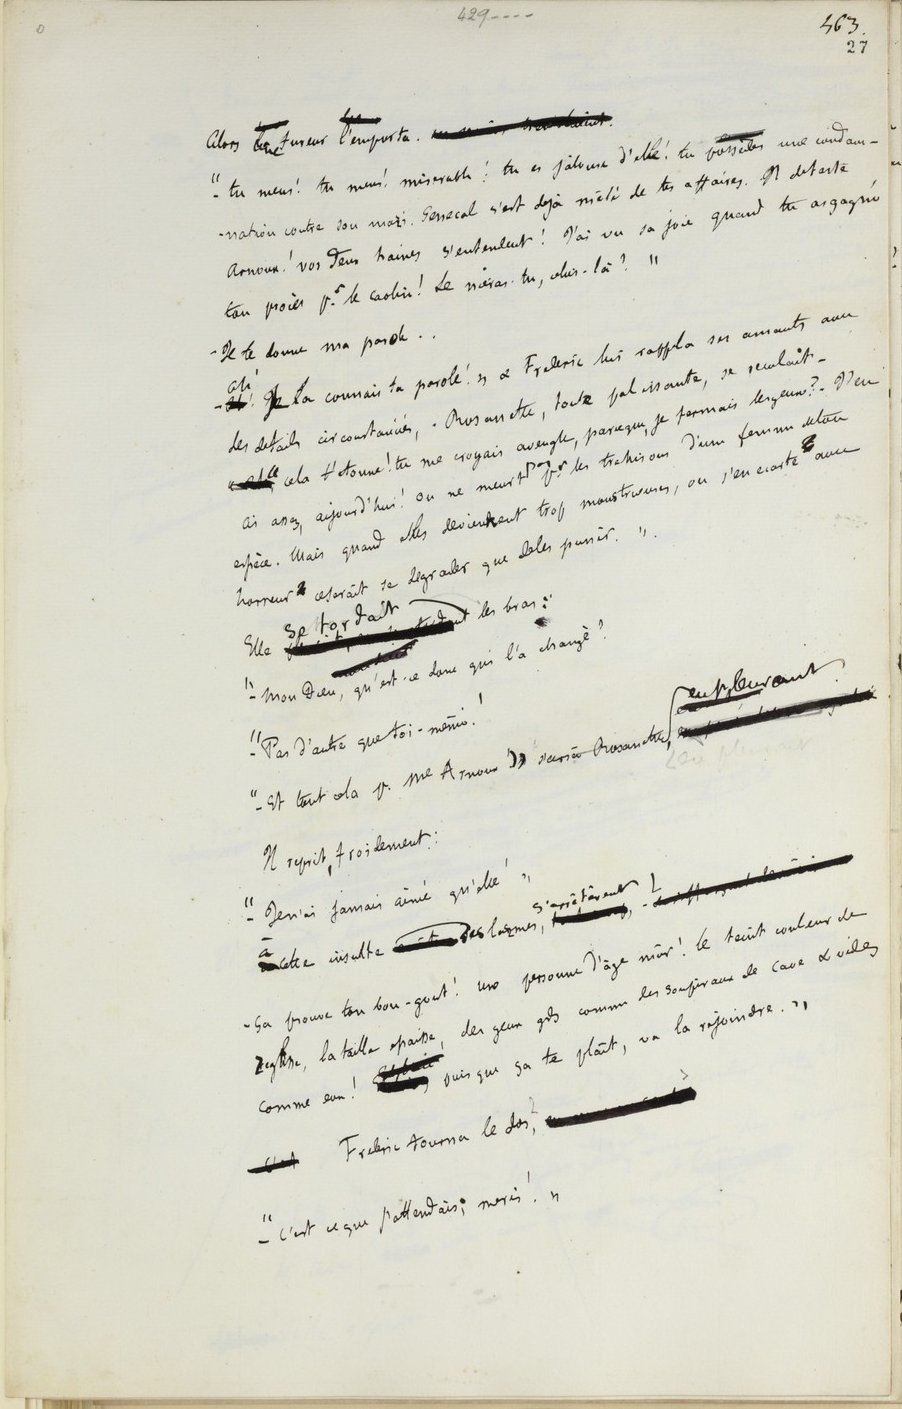 429----
463.
27
Alors une fureur l'emporta.
"- tu mens! tu mens! misérable! tu es jalouse d'elle! tu possèdes une condam-
-nation contre son mari. Senecal s'est dejà mêlé de tes affaires. Il deteste
Arnoux! vos deux haines s'entendent! J'ai vu sa joie quand tu as gagné
ton procès pr le caolin! Le nieras-tu, celui-là? "
- Je te donne ma parole..
- ah! Je la connais ta parole! " & Frederic lui rappela ses amants avec
des details circonstanciés, - Rosanette, toute palissante, se reculait -
" cela t'etonne! tu me croyais aveugle, parceque je fermais les yeux? - J'en
ai assez, aujourd'hui! on ne meurt pas pr les trahisons d'une femme de ton
espèce. Mais quand elles deviennent trop monstrueuses, on s'en ecarte avec
horreur ce serait se degrader que de les punir. ".
Elle se tordait les bras:
"- Mon Dieu, qu'est-ce donc qui l'a changé?
"- Pas d'autre que toi-même!
"- Et tout cela pr. Me Arnoux!" s'ecria Rosanette, en pleurant.
Il reprit, froidement:
"- Je n'ai jamais aimé qu'elle! "
à cette insulte ses larmes, s'arrêtèrent
- Ça prouve ton bon-gout! une personne d'âge mûr! le teint couleur de
reglisse, la taille epaisse, des yeux gds comme des soupiraux de cave & vides
comme eux! puisque ça te plaît, va la rejoindre. "
Frederic tourna le dos,
"- C'est ce que j'attendais; merci! "